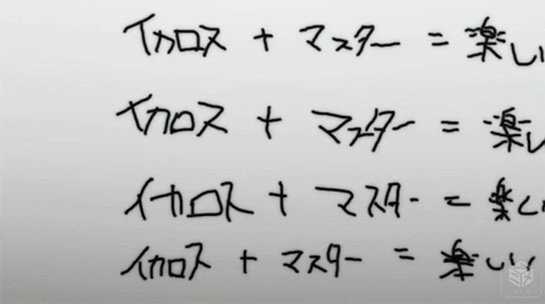 イカロス + マスター = 楽し
イカロス + マスター = 楽し
イカロス + マスター = 楽し
イカロス + マスター = 楽しい